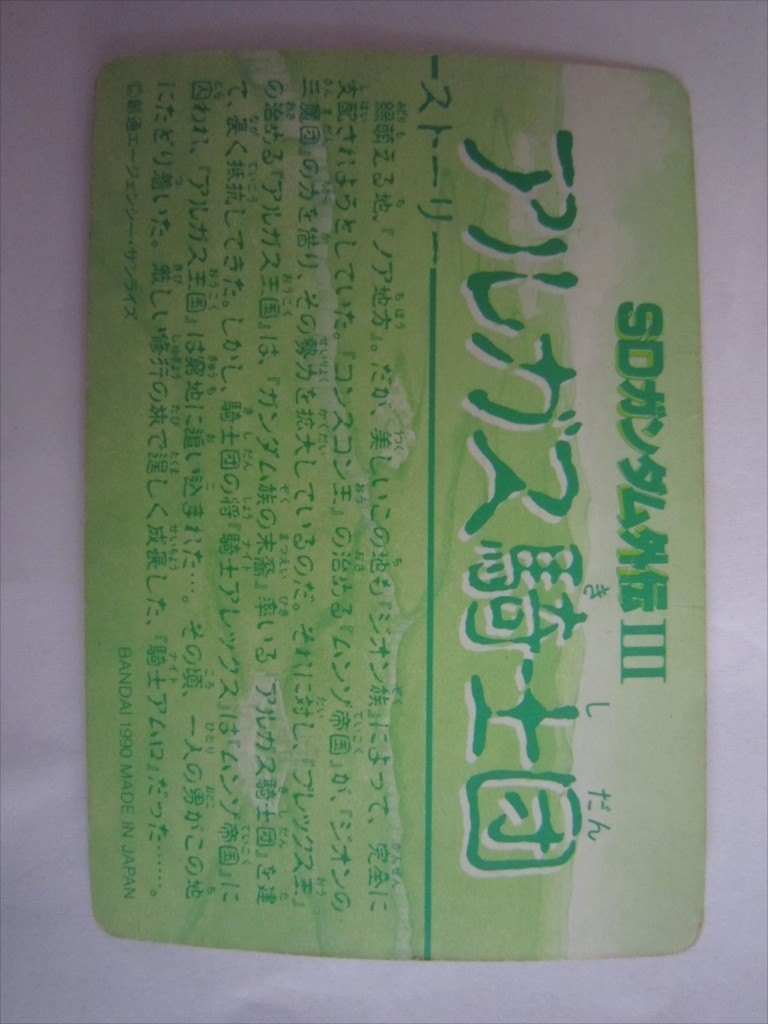 SDガンダム外伝III
アルガス騎士団
きしだん
ーストーリー
緑萌える地、『ノア地方』。だが、美しいこの地も『ジオン族』によって、完全に
支配されようとしていた。『コンスコン王』の治める『ムンゾ帝国』が、『ジオンの
三魔団』の力を借り、その勢力を拡大しているのだ。それに対し、『ブレックス王』
の治める『アルガス王国』は、『ガンダム族の末裔』率いる『アルガス騎士団』を建
て、長く抵抗してきた。しかし、騎士団の将『騎士アレックス』は『ムンゾ帝国』に
囚われ、『アルガス王国』は窮地に追い込まれた…。その頃、一人の男がこの地
にたどり着いた。厳しい修行の旅で逞しく成長した、『騎士アムロ』だった……。
©創通エージェンシー・サンライズ
BANDAI 1990 MADE IN JAPAN